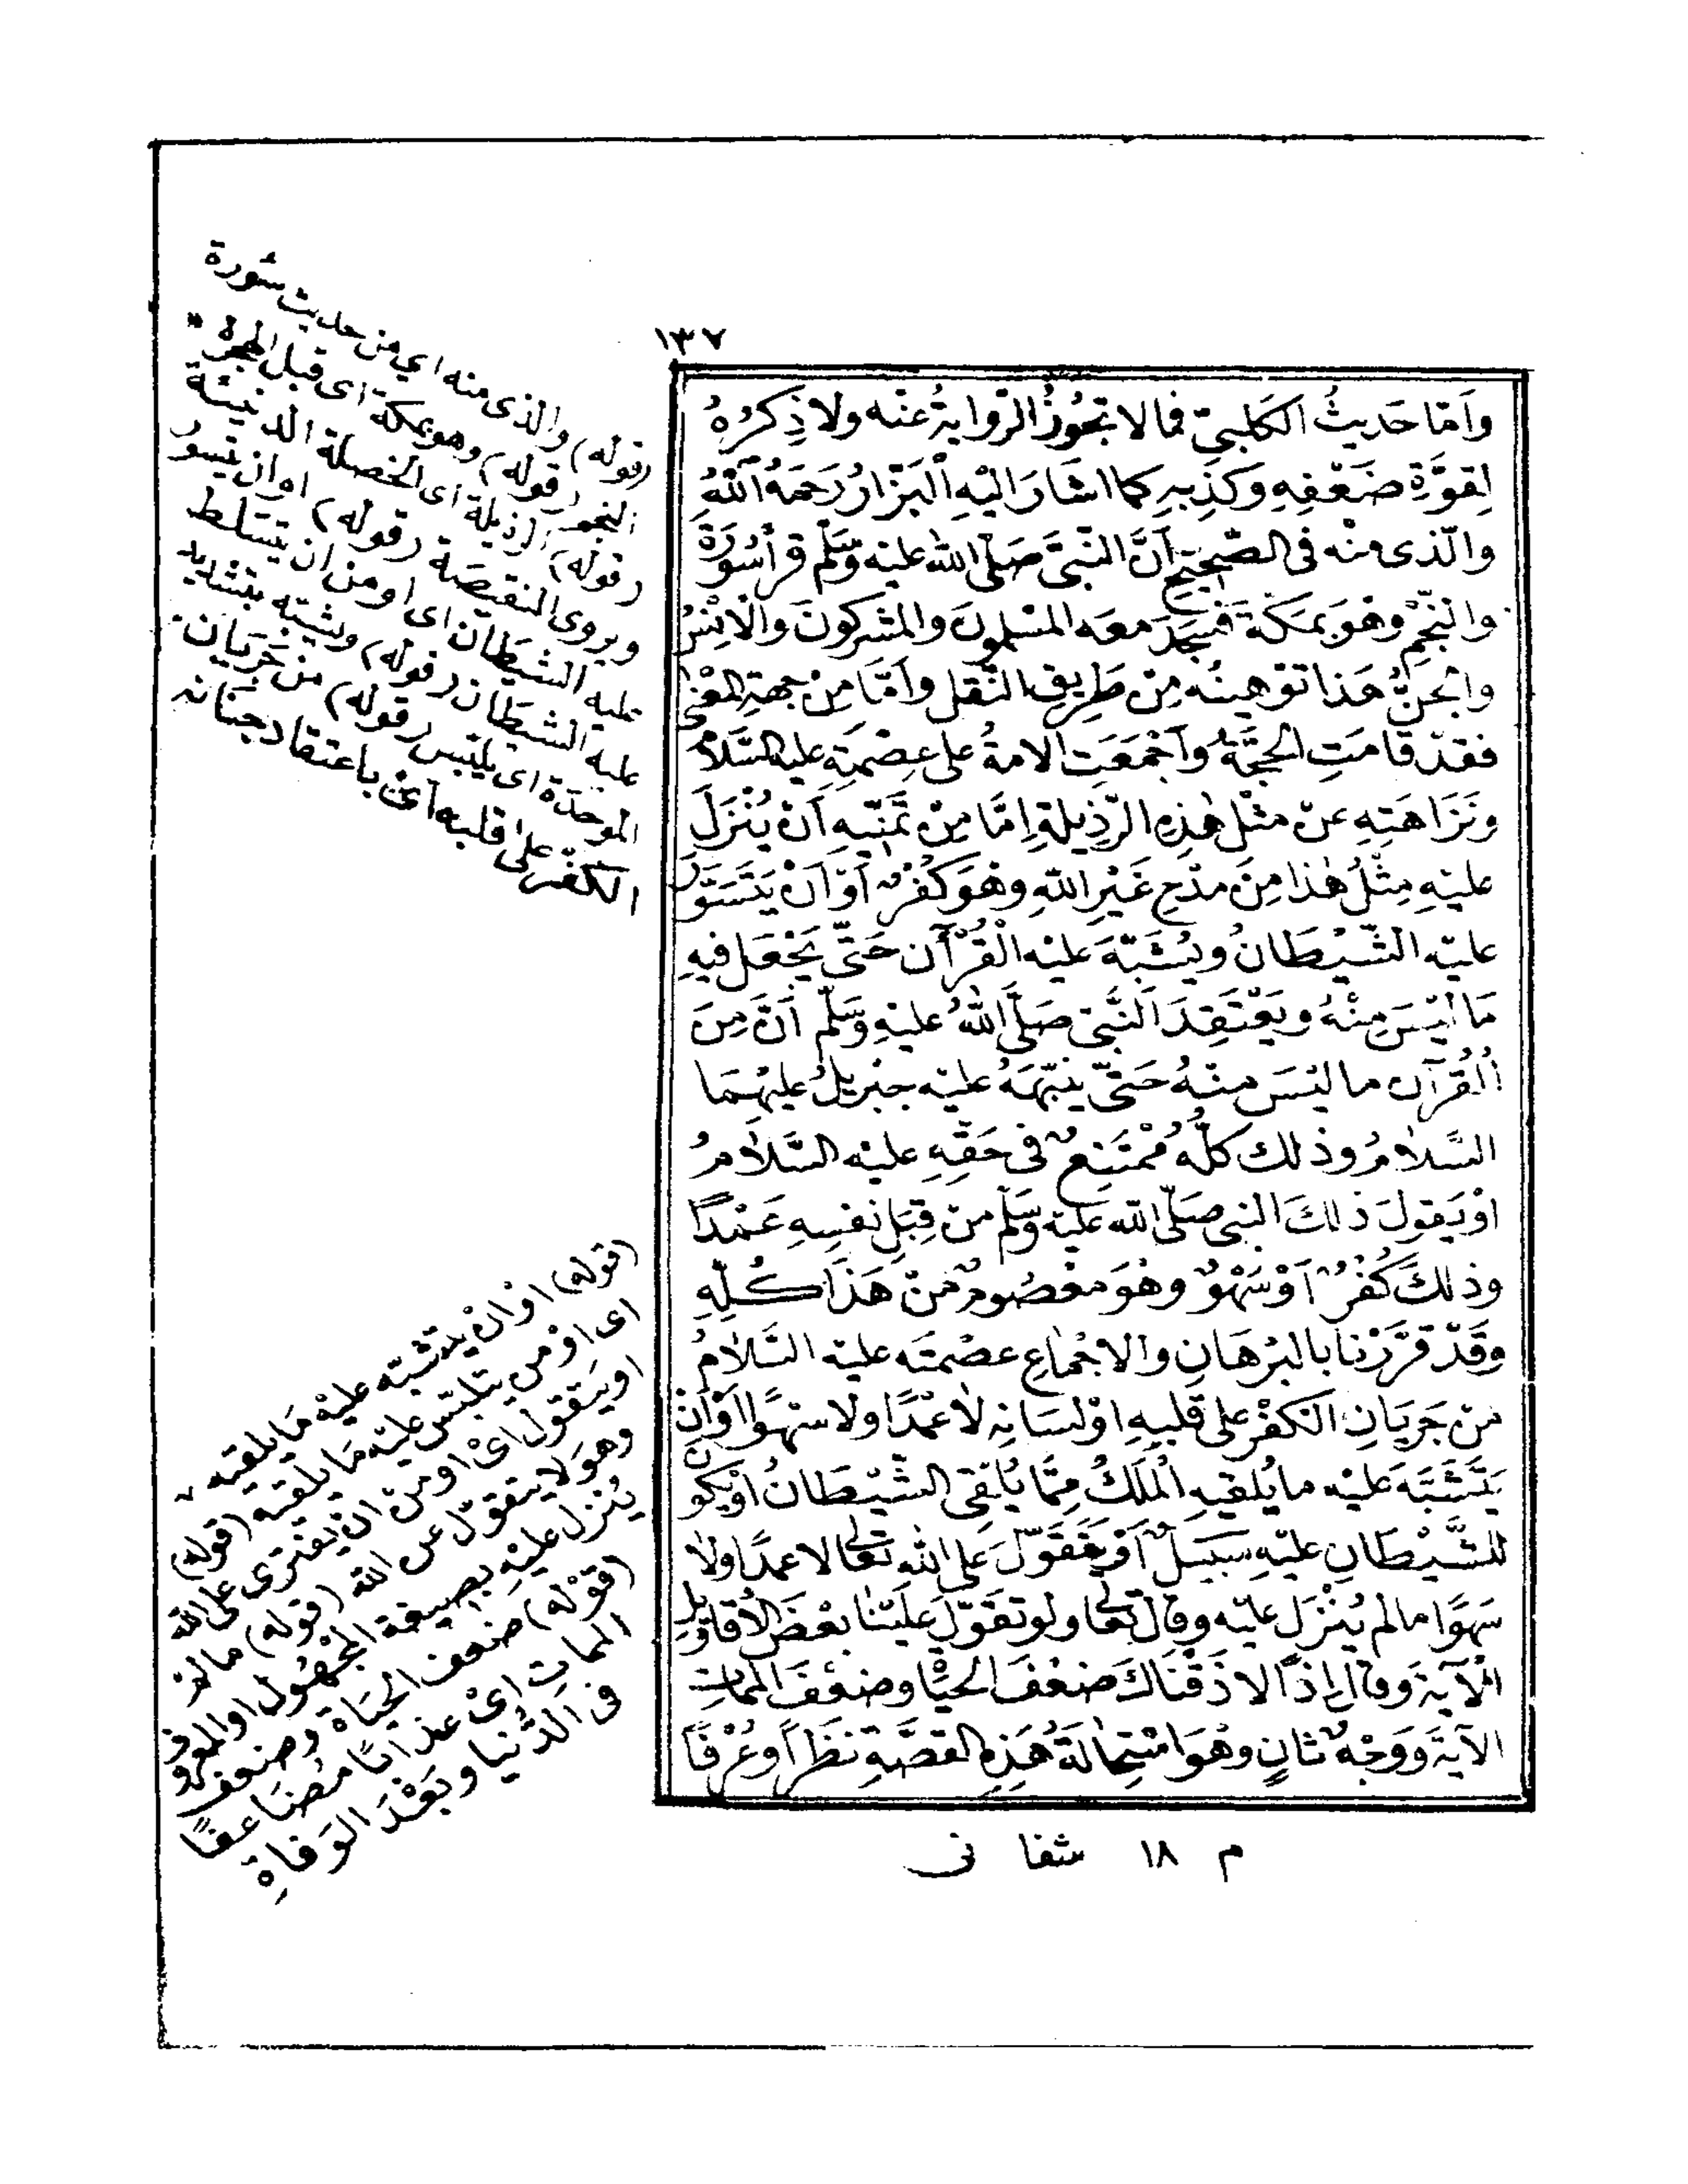 ١٣٧
وَاَمَّا حَدِيثُ الكَلبِيِّ فمالا تَجُوزُ الرِّوايَةُ عنْه ولا ذِكرُهُ
لِقوَّةِ ضَعْفِهِ وَكَذِبِهِ كما اشَارَ اليْهِ الْبَزَّارُ رَحمَهُ اللّٰهُ
والّذى منْه فى الصَّحِيحِ اَنَّ النَّبِىَّ صَلَّى اللّٰه عليْه وَسَلَّم قرأ سُورَةَ
والنّجْمِ وَهْوَ بمَكّةَ فَسجَدَ معَه المسْلِمُونَ والمشركونَ وَالاِنْسُ
وَالجنُّ هَذا تَوْهِينُه مِنْ طَرِيقِ النَّقلِ واَمَّا مِنْ جهةِ المعْنٰى
فقدْ قامَتِ الحجَّةُ وَاَجْمَعَتِ الامةُ على عِصْمَتِهِ عليه السَّلامُ
وَنَزَاهَتِهِ عنْ مثْلِ هٰذِهِ الرَّذِيلةِ اِمَّا مِنْ تَمَنِّيهِ اَنْ يُنْزَلَ
عليْهِ مِثْلُ هٰذا مِنَ مدْحِ غَيْرِ اللّٰهِ وهْوَ كُفْرٌ اَوْ اَنْ يَتَسَوَّرَ
عليْه الشَّيْطَانُ ويُشَبِّهَ عليْه الْقُرْآن حَتّٰى يَجْعَل فيهِ
مَا ليْسَ مِنْهُ ويَعْتَقِدَ النَّبِىّ صَلَّى اللّٰهُ عليْهِ وَسَلَّم اَنَّ مِنَ
اْلقُرْآن ما ليْسَ منْهُ حَتّٰى يُنَبِّهَهُ عليْه جبْرِيلُ عليْهِمَا
السَّلامُ وذلك كلُّه مُمْتَنِعٌ فى حَقِّهِ عليْه السَّلَامُ
اوْ يَقولَ ذلكَ النبى صَلَّى اللّٰه عليْه وَسَلَّم منْ قِبَلِ نفسِهِ عَمْدًا
وَذلكَ كُفْرٌ اَوْ سَهْوٌ وهُوَ معْصُومٌ منْ هَذَا كُلِّهِ
وَقَدْ قَرَّرْنَا بالبُرْهَانِ والاجْمَاعِ عصْمَتَه عليْه السَّلَامُ
منْ جَرَيَانِ الكفْرِ على قلبِهِ اوْ لسَانِهِ لا عَمْدًا ولا سهْوًا اَوْ اَنْ
يَتَشَبَّهَ عَليْه ما يُلقِيهِ الْمَلَكُ مِمَّا يُلْقِى الشَّيْطَانُ اَوْ يكونَ
للشَّيْطَانِ عليْهِ سَبيلٌ اَوْ يَتَقَوَّلَ عَلى اللّٰه تعَالى لا عمدًا ولا
سَهْوًا مالم يُنْزَلْ عليْه وقالَ تعَالى ولو تقَوَّلَ عَلَيْنا بعْضَ الأقاوِيلِ
اْلآيَةَ وَقالَ اِذًا لاَذَقْنَاكَ ضِعْفَ الحيَاةِ وضِعْفَ المَمَاتِ
الآيَةَ وَوَجْهٌ ثانٍ وهُوَ اسْتِحالَةُ هَذِهِ القصَّةِ نَظَرًا وعُرْفًا
م ١٨ شفا نى
(قوله) والذى منه اي من حديث سُورة
النجم (قوله) وهو بمكة اى قبل الهجرة
(قوله) الرذيلة اى الخصلة الدنيئة
ويروى النقيصة (قوله) او ان يتسور
عليه الشيطان اى او من ان يتسلط
عليه الشيطان (قوله) ويشبه بتشديد
الموحدة اى يلتبس (قوله) من جَرَيان
الكفْر على قلبه اى باعتقاد جنانه
(قوله) اوْ ان يتشبه عليْه مَا يلقيه
اى اوْ من يتلبّس عليْه مَا يلقيه (قوله)
او يتقول اىْ او منْ انْ يفترى على اللّٰه
وهوَ لا يتقوّل عن اللّٰه (قوله) مالم
يُنْزل عليْهِ بصيغة المجْهُول او المعروف
(قوْله) ضِعْف الحيَاة وضعف
الممات اىْ عذابًا مضَاعفًا
فى الدُّنيا وبَعْدَ الوَفاةِ